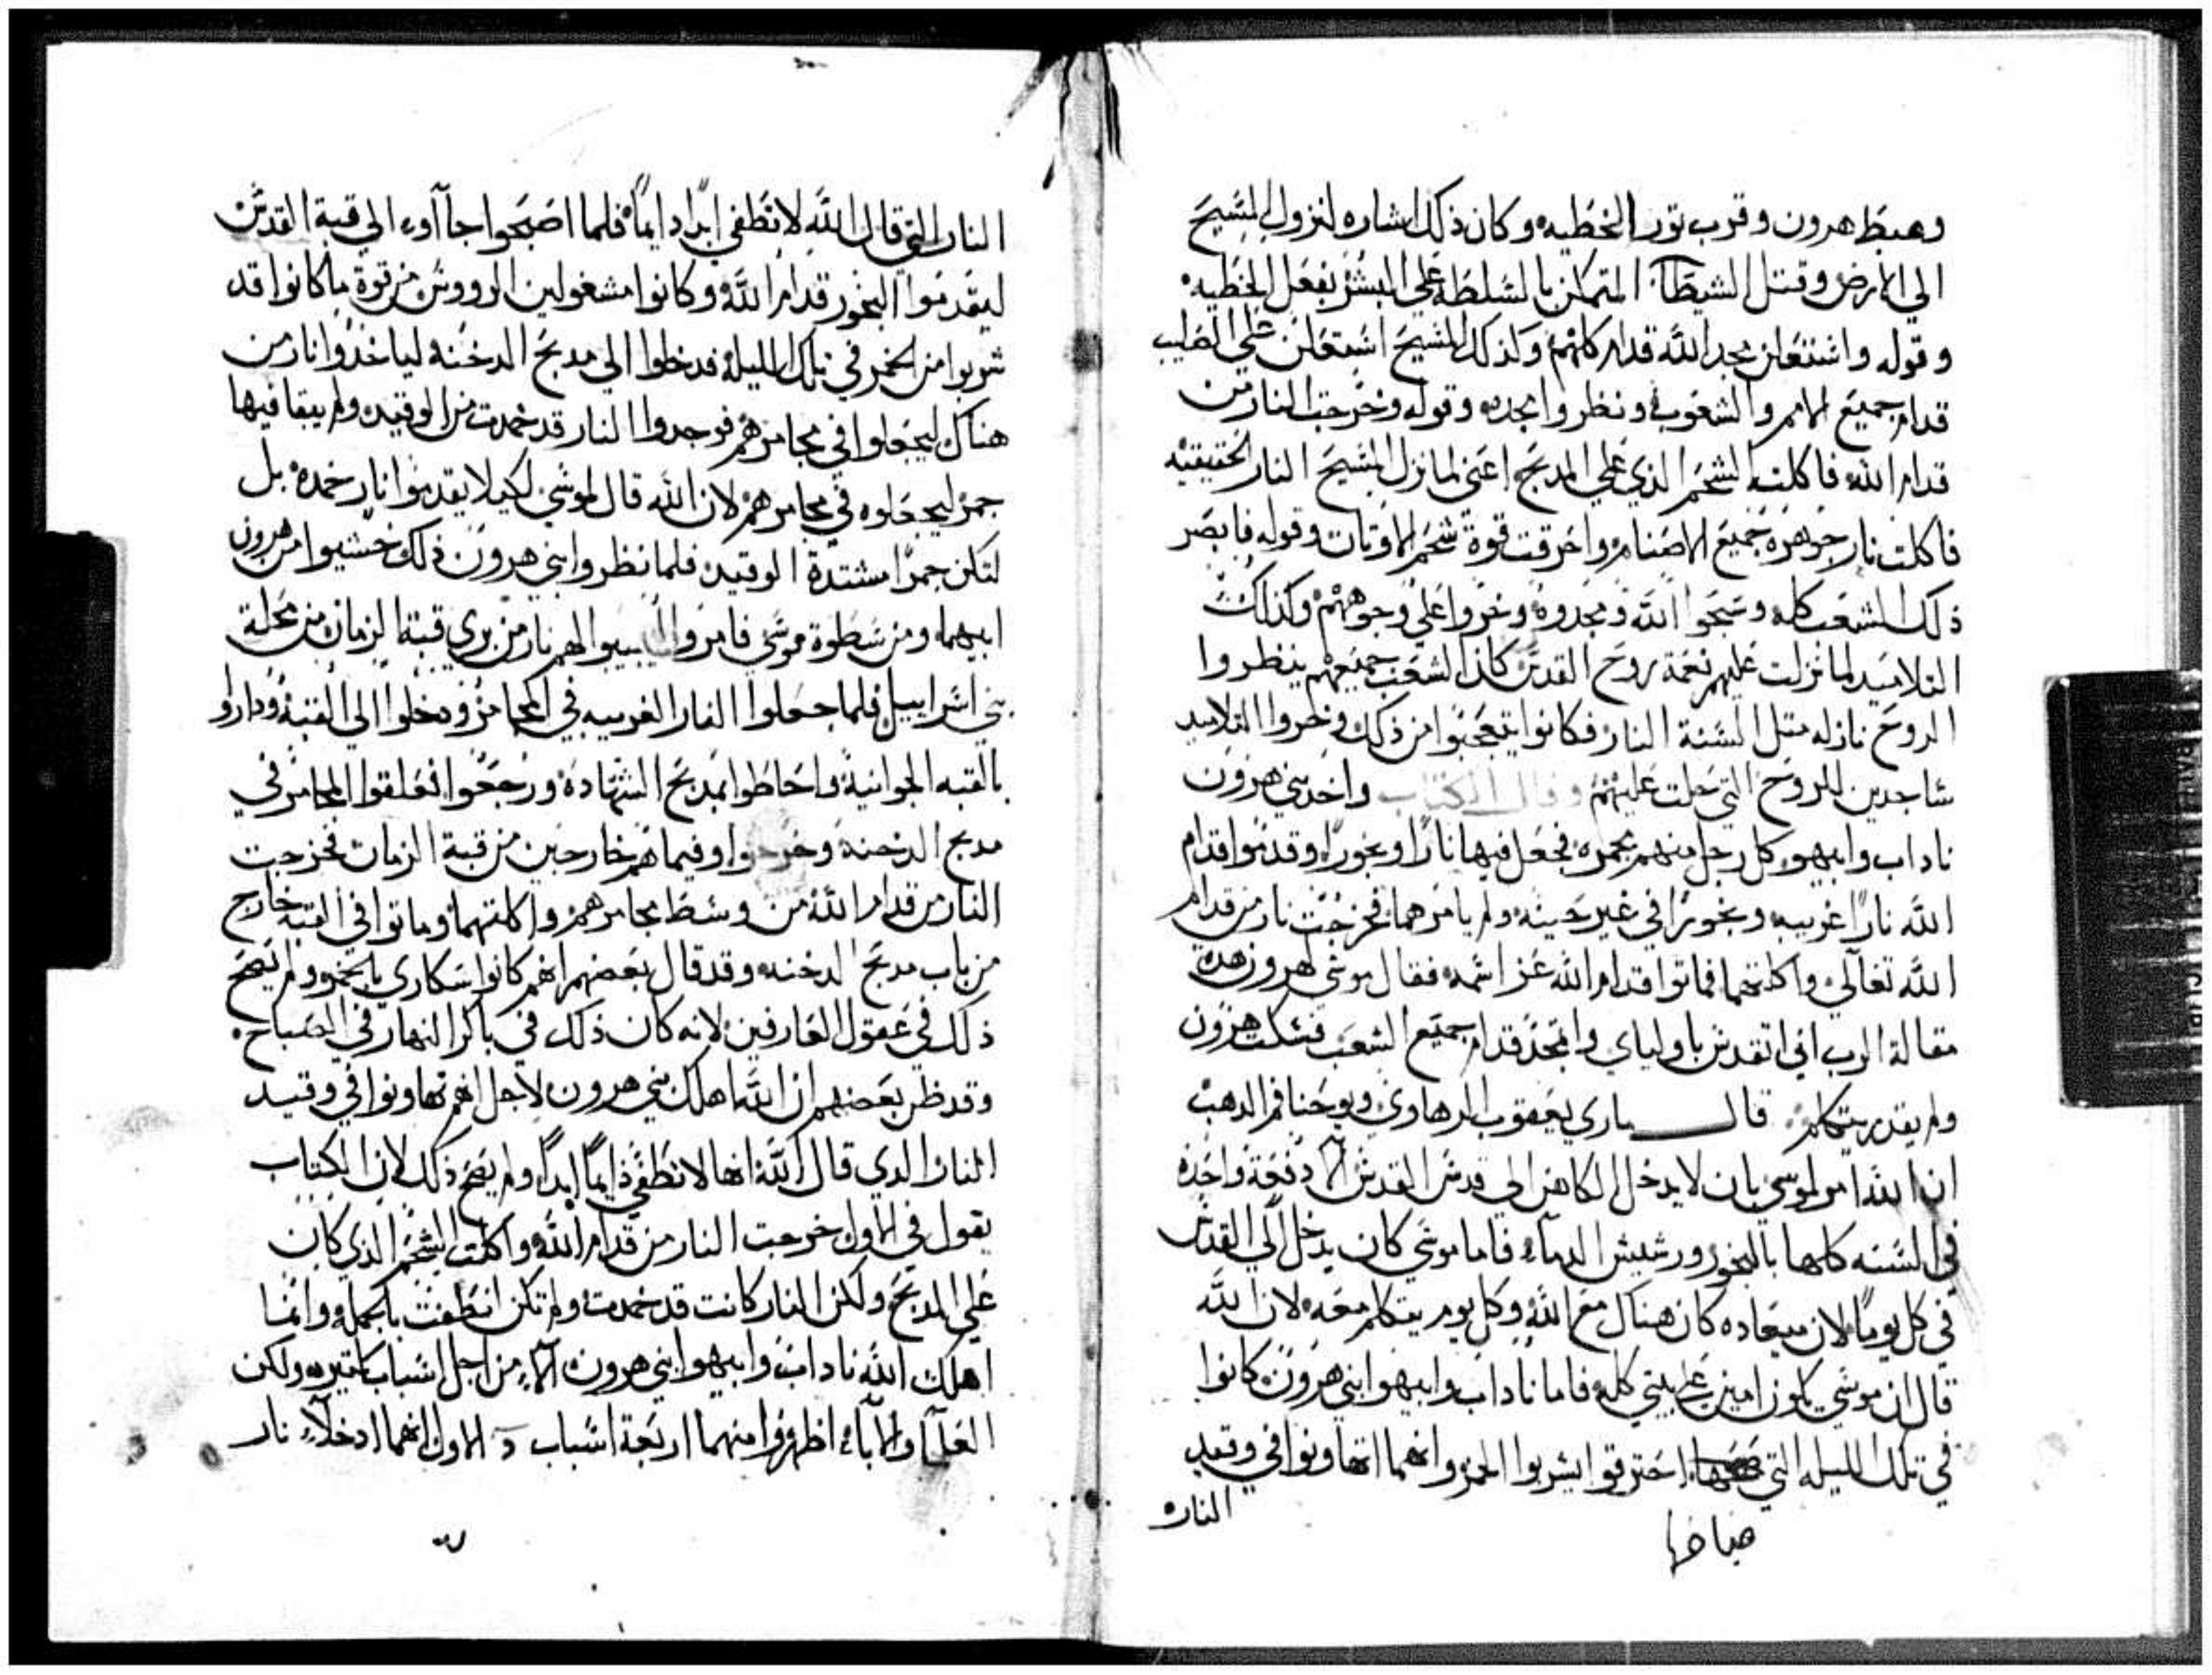 وهبط هرون وقرب تور الخطيه وكان ذلك اشاره لنزول المسيح
الي الارض وقتل الشيطان المتمكن بالسلطه علي البشر بفعل الخطيه
وقوله واشتعلن مجد الله قدام كلهم ولذلك المسيح اشتعلن علي الصليب
قدام جميع الامم والشعوب ونظروا مجده وقوله وخرجت النار من
قدام الله فاكلت الشحم الذي علي المدبح اعني لما نزل المسيح النار الحقيقيه
فاكلت نار جوهره جميع الاصنام واحرقت قوة شحم الاوتان وقوله فابصر
ذلك الشعب كله وسبحوا الله ومجدوه وخروا علي وجوههم وكذلك
التلاميد لما نزلت عليهم نعمة روح القدس كان الشعب جميعهم ينظروا
الروح نازله متل السنة النار فكانوا يتعجبوا من ذلك وخروا التلاميد
ساجدين للروح التي حلت عليهم وقال الكتاب واخد بني هرون
ناداب وابيهو كل رجل منهم مجمره فجعل فيها نارًا وبخورًا وقدموا قدام
الله نارًا غريبه وبخورًا في غير حينه ولم يامرهما فخرجت نار من قدام
الله تعالي واكلتهما فماتوا قدام الله عز اسمه فقال موسي لهرون هده
مقالة الرب اني اتقدس باولياي واتمجد قدام جميع الشعب فسكت هرون
ولم يقدر يتكلم قال ماري يعقوب الرهاوي ويوحنا فم الدهب
ان الله امر لموسي بان لا يدخل الكاهن الي قدس القدس الا دفعة واحده
في السنه كلها بالبخور ورشيش الدماء فاما موسي كان يدخل الي القدس
في كل يومًا لان ميعاده كان هناك مع الله وكل يوم يتكلم معه لان الله
قال ان موسي يكون امين علي بيتي كله فاما ناداب وابيهوا ابني هرون كانوا
في تلك الليله التي احترقوا يشربوا الخمر وانهما اتهاونوا في وقيد
صباحها
النار
النار التي قال الله لا تطفي ابدًا دايمًا فلما اصبحوا جاآوء الي قبة القدس
ليقدموا البخور قدام الله وكانوا مشغولين الرووس من قوة ما كانوا قد
شربوا من الخمر في تلك الليلة فدخلوا الي مدبح الدخنه لياخدوا نار من
هناك ليجعلوا في مجامرهم فوجدوا النار قد خمدت من الوقيد ولم يبقا فيها
جمر ليجعلوه في مجامرهم لان الله قال لموسي لكيلا يقدموا نار خمده بل
لتكن جمرًا مشتدة الوقيد فلما نظروا ابني هرون ذلك خشيوا من هرون
ابيهما ومن سطوة موسي فامروا الهم نار من بري قبة الزمان من محلة
بني اسراييل فلما جعلوا النار الغريبه في المجامر ودخلوا الي القبة وداروا
بالقبه الجوانية واحاطوا بمدبح الشهادة ورجعوا فعلقوا المجامر في
مدبح الدخنه وخرجوا وفيما هم خارجين من قبة الزمان فخرجت
النار من قدام الله من وسط مجامرهم واكلتهما وماتوا في القبه خارج
من باب مدبح الدخنه وقد قال بعضهم انهم كانوا سكاري بالخمر ولم يصح
ذلك في عقول العارفين لانه كان ذلك في باكر النهار في الصباح
وقد ظن بعضهم ان الله اهلك بني هرون لاجل انهم تهاونوا في وقيد
النار الدي قال الله انها لا تطفي دايمًا ابدًا ولم يصح ذلك لان الكتاب
يقول في الاول خرجت النار من قدام الله واكلت الشحم الذي كان
علي المدبح ولكن النار كانت قد خمدت ولم تكن انطفت بالجمله وانما
اهلك الله ناداب وابيهوا ابني هرون الا من اجل اسباب كتيره ولكن
العلما والاباء اظهروا منهما اربعة اسباب الاول انهما ادخلا نار